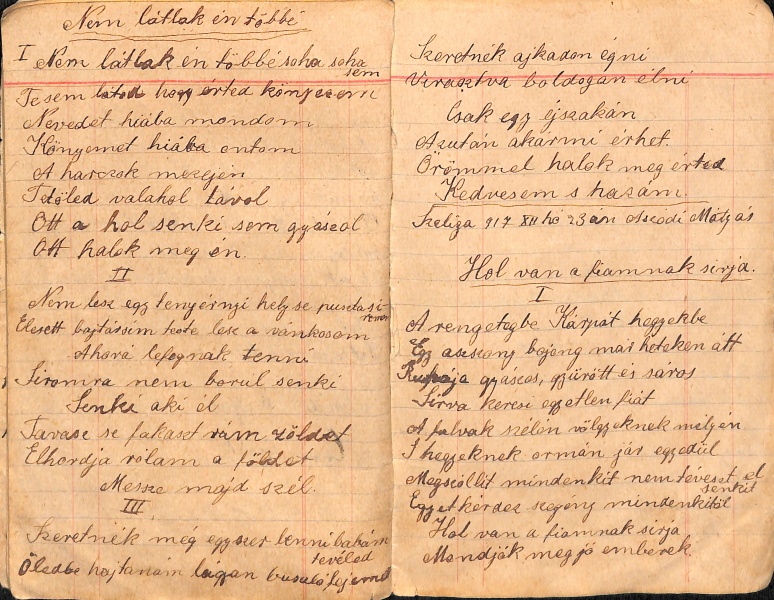 Nem látlak én többé
I Nem látlak én többé soha soha
sem
Te sem látod hogy érted könyezem
Nevedet hiába mondom
Könyemet hiába ontom
A harczok mezején
Tetöled valahol távol
Ott a hol senki sem gyászol
Ott halok meg én.
II
Nem lesz egy tenyérnyi hely se puszta si
romon
Elesett bajtássim teste lesz a vánkosom
Ahová lefognak tenni
Siromra nem borul senki
Senki aki él
Tavasz se fakaszt rám zöldet
Elhordja rólam a földet
Messze majd szél.
III
Szeretnék még egyszer lenni babám
tevéled
Öledbe hajtanám lágyan busuló fejemet
Szeretnék ajkadon égni
Virasztva boldogan élni
Csak egy éjszakán
Azután akármi érhet.
Örömmel halok meg érted
Kedvesem s hazám.
Szeliza 917 XII hó 23 án Aszódi Mátyás
Hol van a fiamnak sirja.
I
A rengetegbe Kárpát hegyekbe
Egy asszony bojong már heteken átt
Ruhája gyászos, gyürött és sáros
Sirva keresi egyetlen fiát
A falvak szélén völgyeknek mélyén
S hegyeknek ormán jár egyedül
Megszóllit mindenkit nem téveszt el
senkit
Egyet kérdez szegény mindenkitöl
Hol van a fiamnak sirja
Mondják meg jó emberek